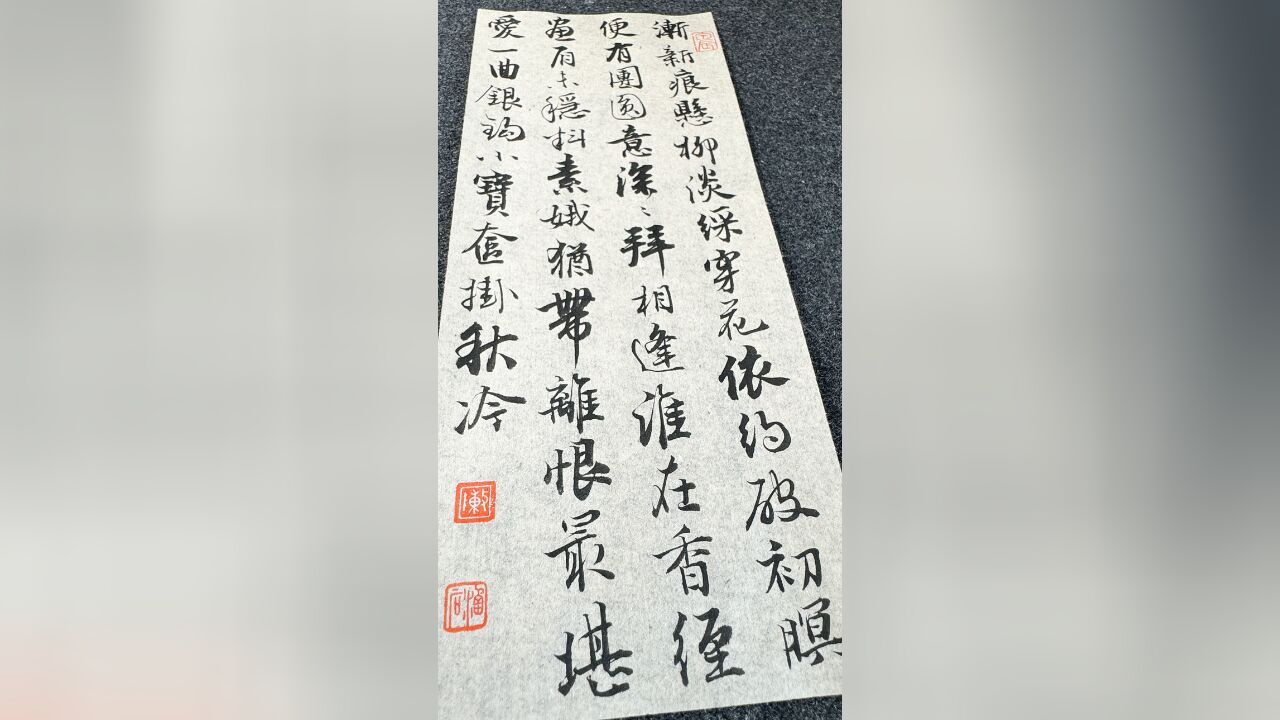 漸新痕懸柳淡綵穿花依約破初暝
便有團圓意深〻拜相逢誰在香徑
畫眉未穩料素娥猶帶離恨最堪
愛一曲銀鈎小寶奩掛秋冷